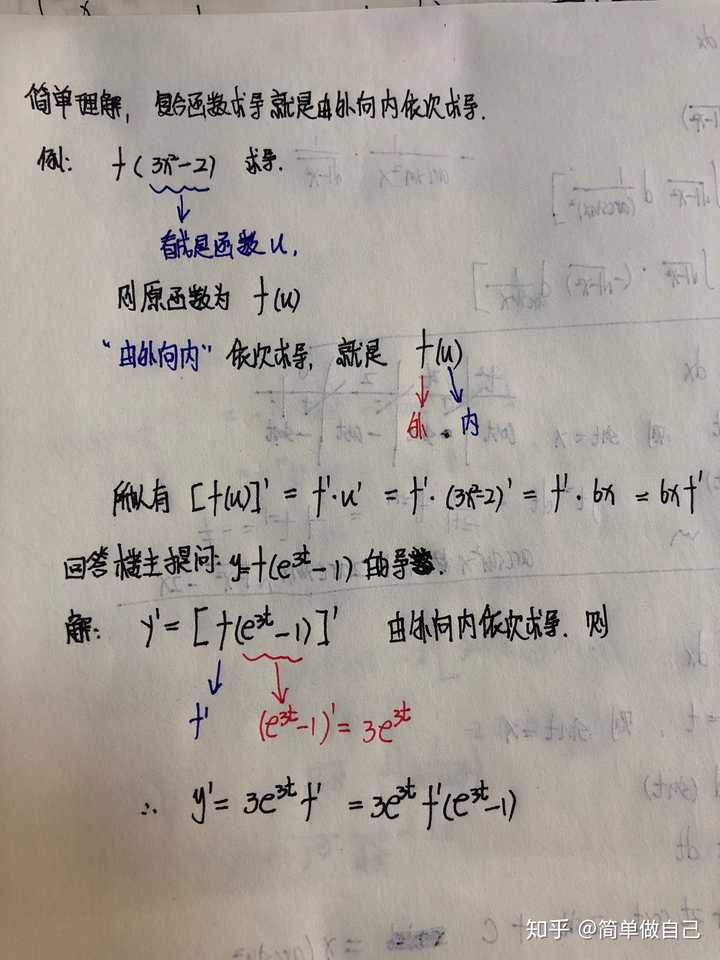 简单理解，复合函数求导就是由外向内依次求导.
例: f(3x²-2) 求导.
看成是函数u,
则原函数为 f(u)
"由外向内"依次求导, 就是 f(u)
外 . 内
所以有 [f(u)]' = f'·u' = f'·(3x²-2)' = f'·6x = 6xf'
回答楼主提问: y=f(e³ᵗ-1) 的导数.
解: y' = [f(e³ᵗ-1)]' 由外向内依次求导. 则
f' (e³ᵗ-1)' = 3e³ᵗ
∴ y' = 3e³ᵗf' = 3e³ᵗf'(e³ᵗ-1)
知乎 @简单做自己